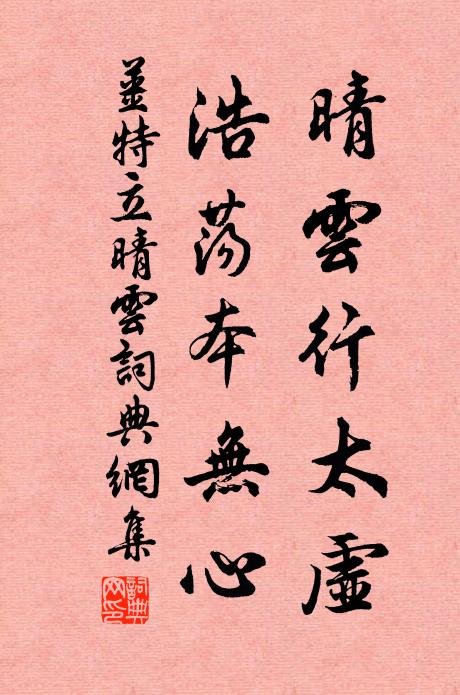 晴雲行太虛
浩蕩本無心
姜特立晴雲詞典網集
詞典網印